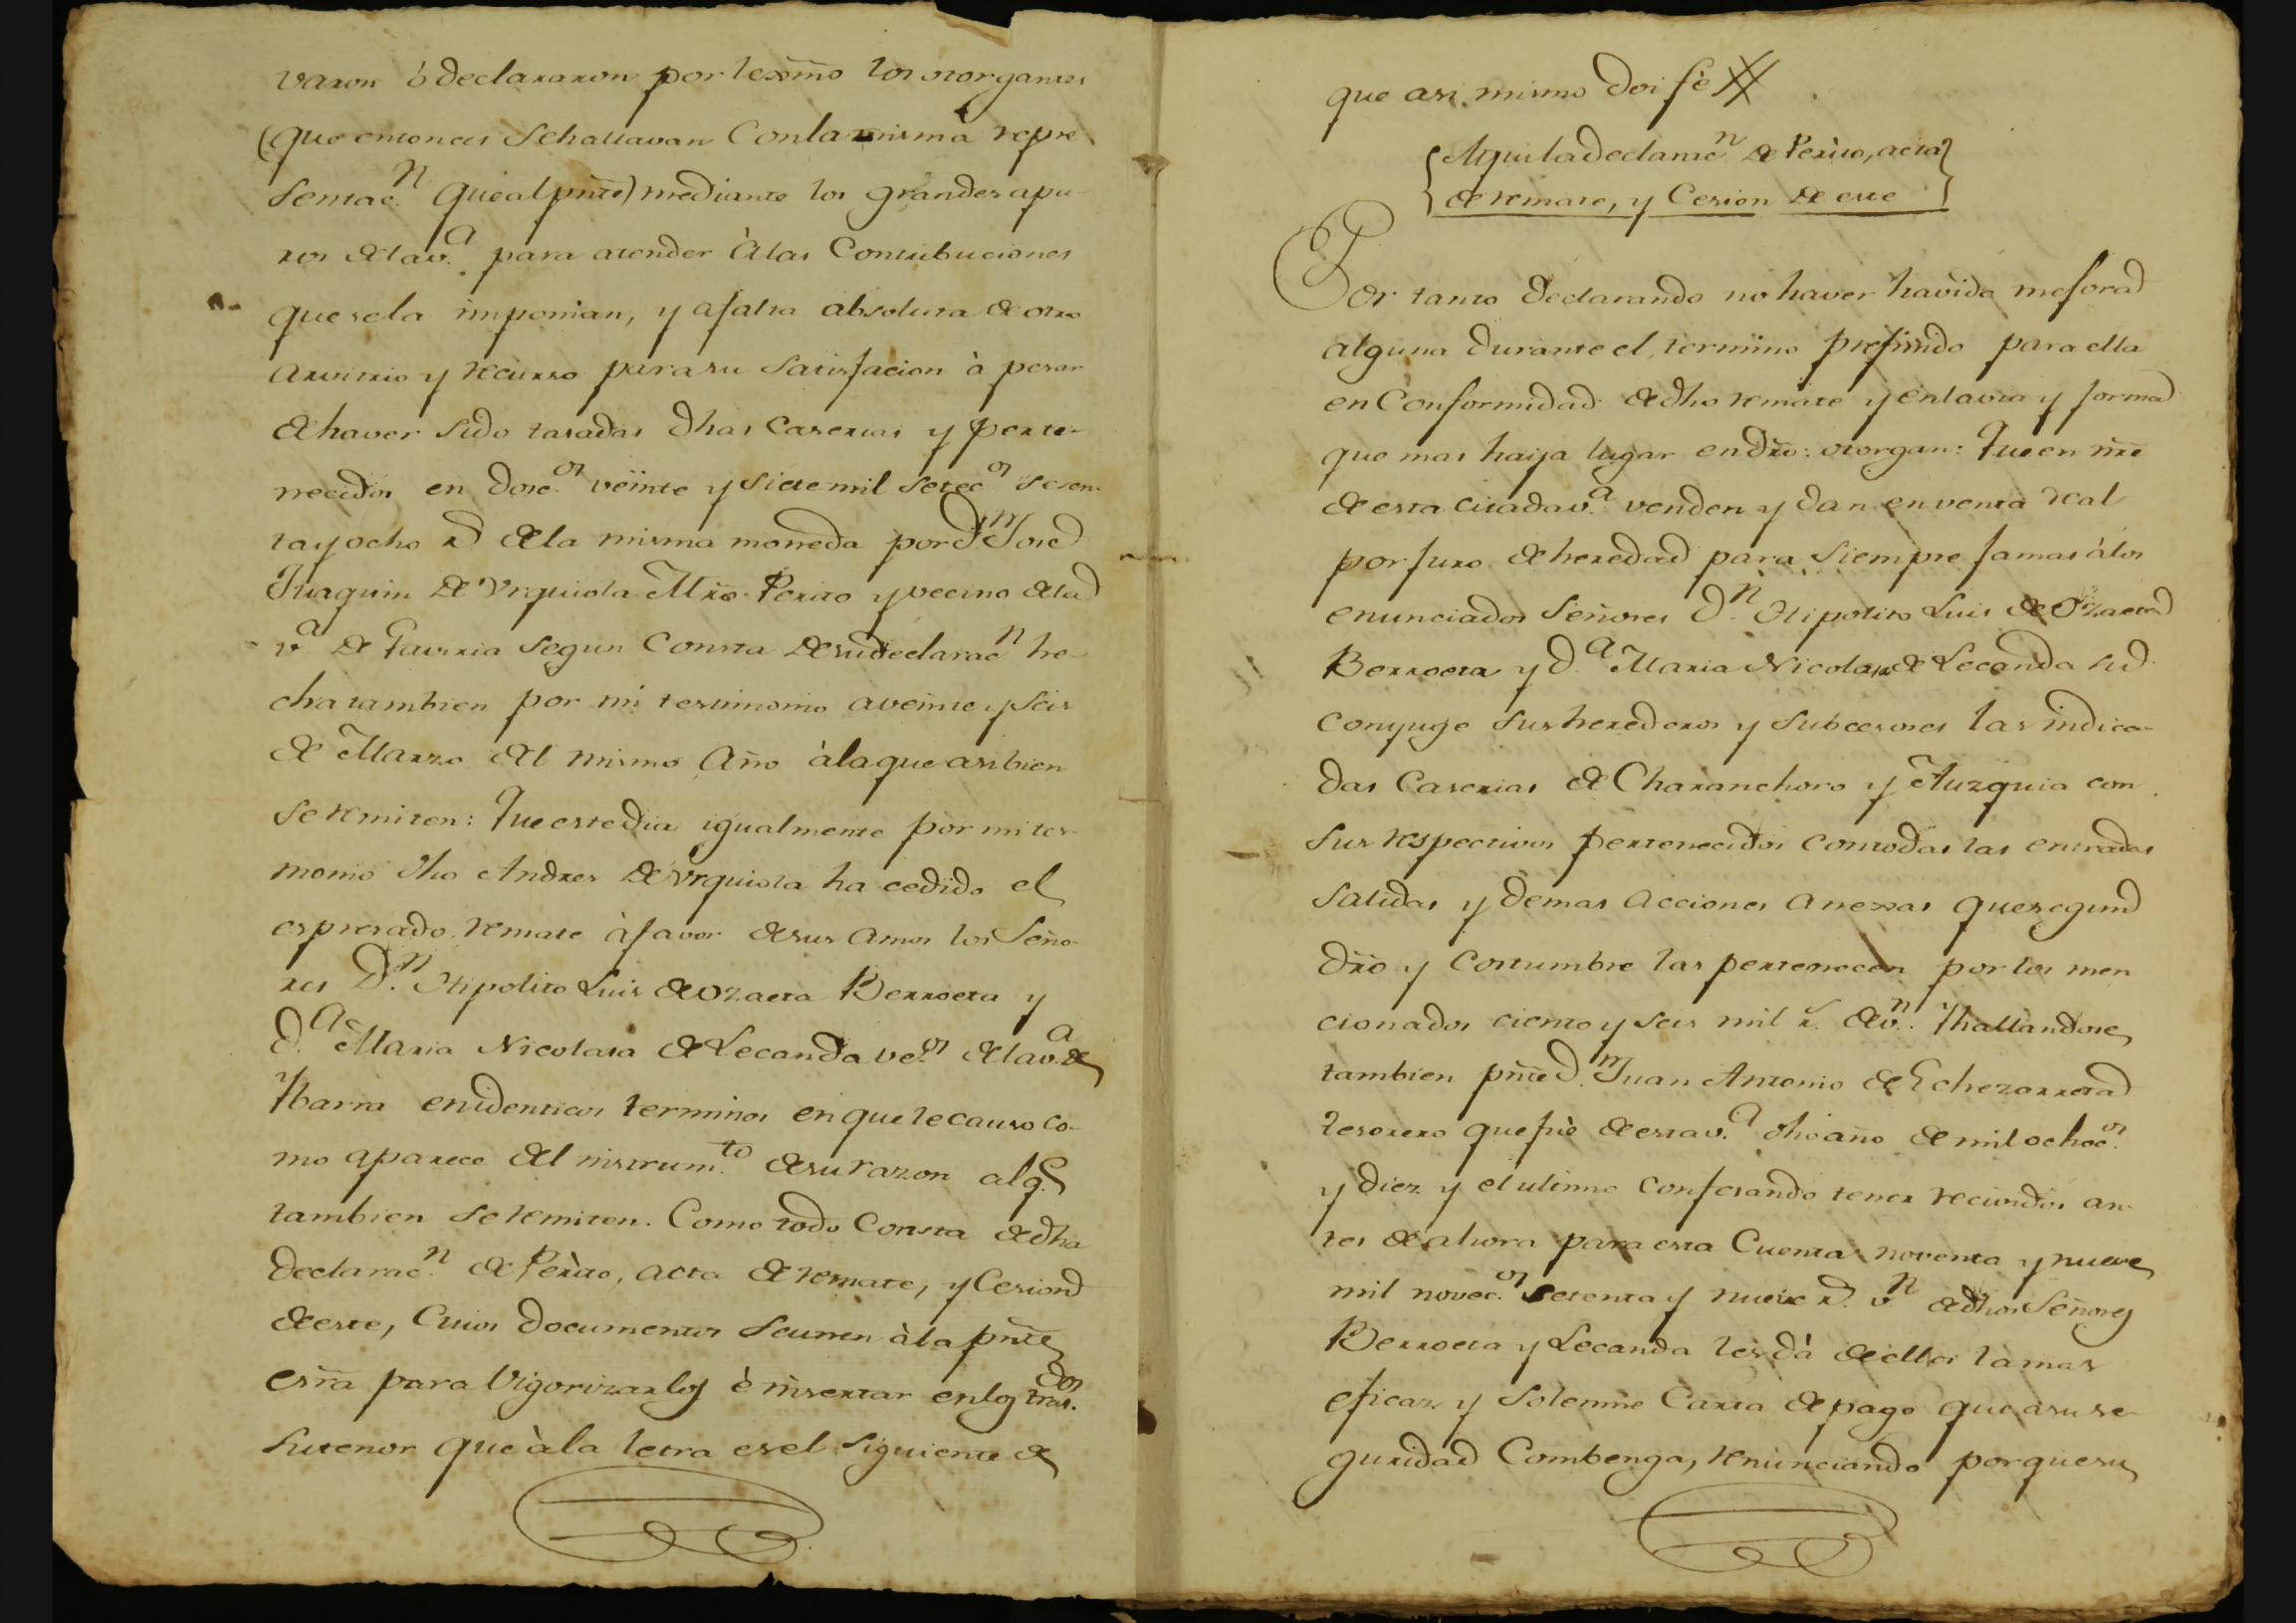 varon ò declararon por lexmo los otorgantes
(que entonces se hallavan Con la misma repre
sentac.n que al pnte) mediante los grandes apu-
ros de la v.a para atender à las Contribuciones
que se la imponian, y a falta absoluta de otro
arvitrio y recurso para su satisfacion à pesar
de haver sido tasadas dhas Caserias y perte-
necidos en dosc.os veinte y siete mil setec.os sesen-
ta y ocho r.s de la misma moneda por d.n José
Joaquin de Urquiola Mro Perito y vecino de la
v.a de Gaviria segun Consta de su declarac.n he-
cha tambien por mi testimonio a veinte y seis
de Marzo del mismo Año à la que asi bien
se remiten: Que este dia igualmente por mi tes-
monio dho Andres de Urquiola ha cedido el
espresado remate à favor de sus amos los Seño-
res D.n Hipolito Luis de Ozaeta Berroeta y
d.a Maria Nicolasa de Lecanda ve.os de la v.a de
Ybarra en identicos terminos en que le causo co-
mo aparece del instrum.to de su razon al q.e
tambien se remiten. Como todo Consta de dha
declarac.n de Perito, acta de remate, y Cesion
de este, Cuios documentos se unen à la pnte
esrra para Vigorizarlos è insertar en los tras.dos
su tenor que à la letra es el siguiente de
que asi mismo doi fè
{Aqui la declarac.n de Perito, acta}
{de remate, y Cesion de este}
Por tanto declarando no haver havido mejora
alguna durante el termino prefinido para ella
en Conformidad de dho remate y en la via y forma
que mas haya lugar en dro: otorgan: Que en nre
de esta citada v.a venden y dan en venta real
por juro de heredad para siempre jamas à los
enunciados Señores D.n Hipolito Luis de Ozaeta
Berroeta y d.a Maria Nicolasa de Lecanda su
conyuge sus herederos y subcesores las indica-
das Caserias de Charanchoro y Auzquia con
sus respectivos pertenecidos con todas las entradas
salidas y demas acciones anexas que segun
dro y Costumbre las pertenecen por los men
cionados ciento y seis mil r.s de v.n Y hallandose
tambien pnte d.n Juan Antonio de Echezarreta
tesorero que fuè de esta v.a dho año de mil ochoc.os
y diez y el ultimo confesando tener recividos an-
tes de ahora para esta Cuenta noventa y nueve
mil novec.os setenta y nueve r.s v.n de dhos Señores
Berroeta y Lecanda les dà de ellos la mas
eficaz y solemne Carta de pago que à su se-
guridad Combenga, renunciando por que su